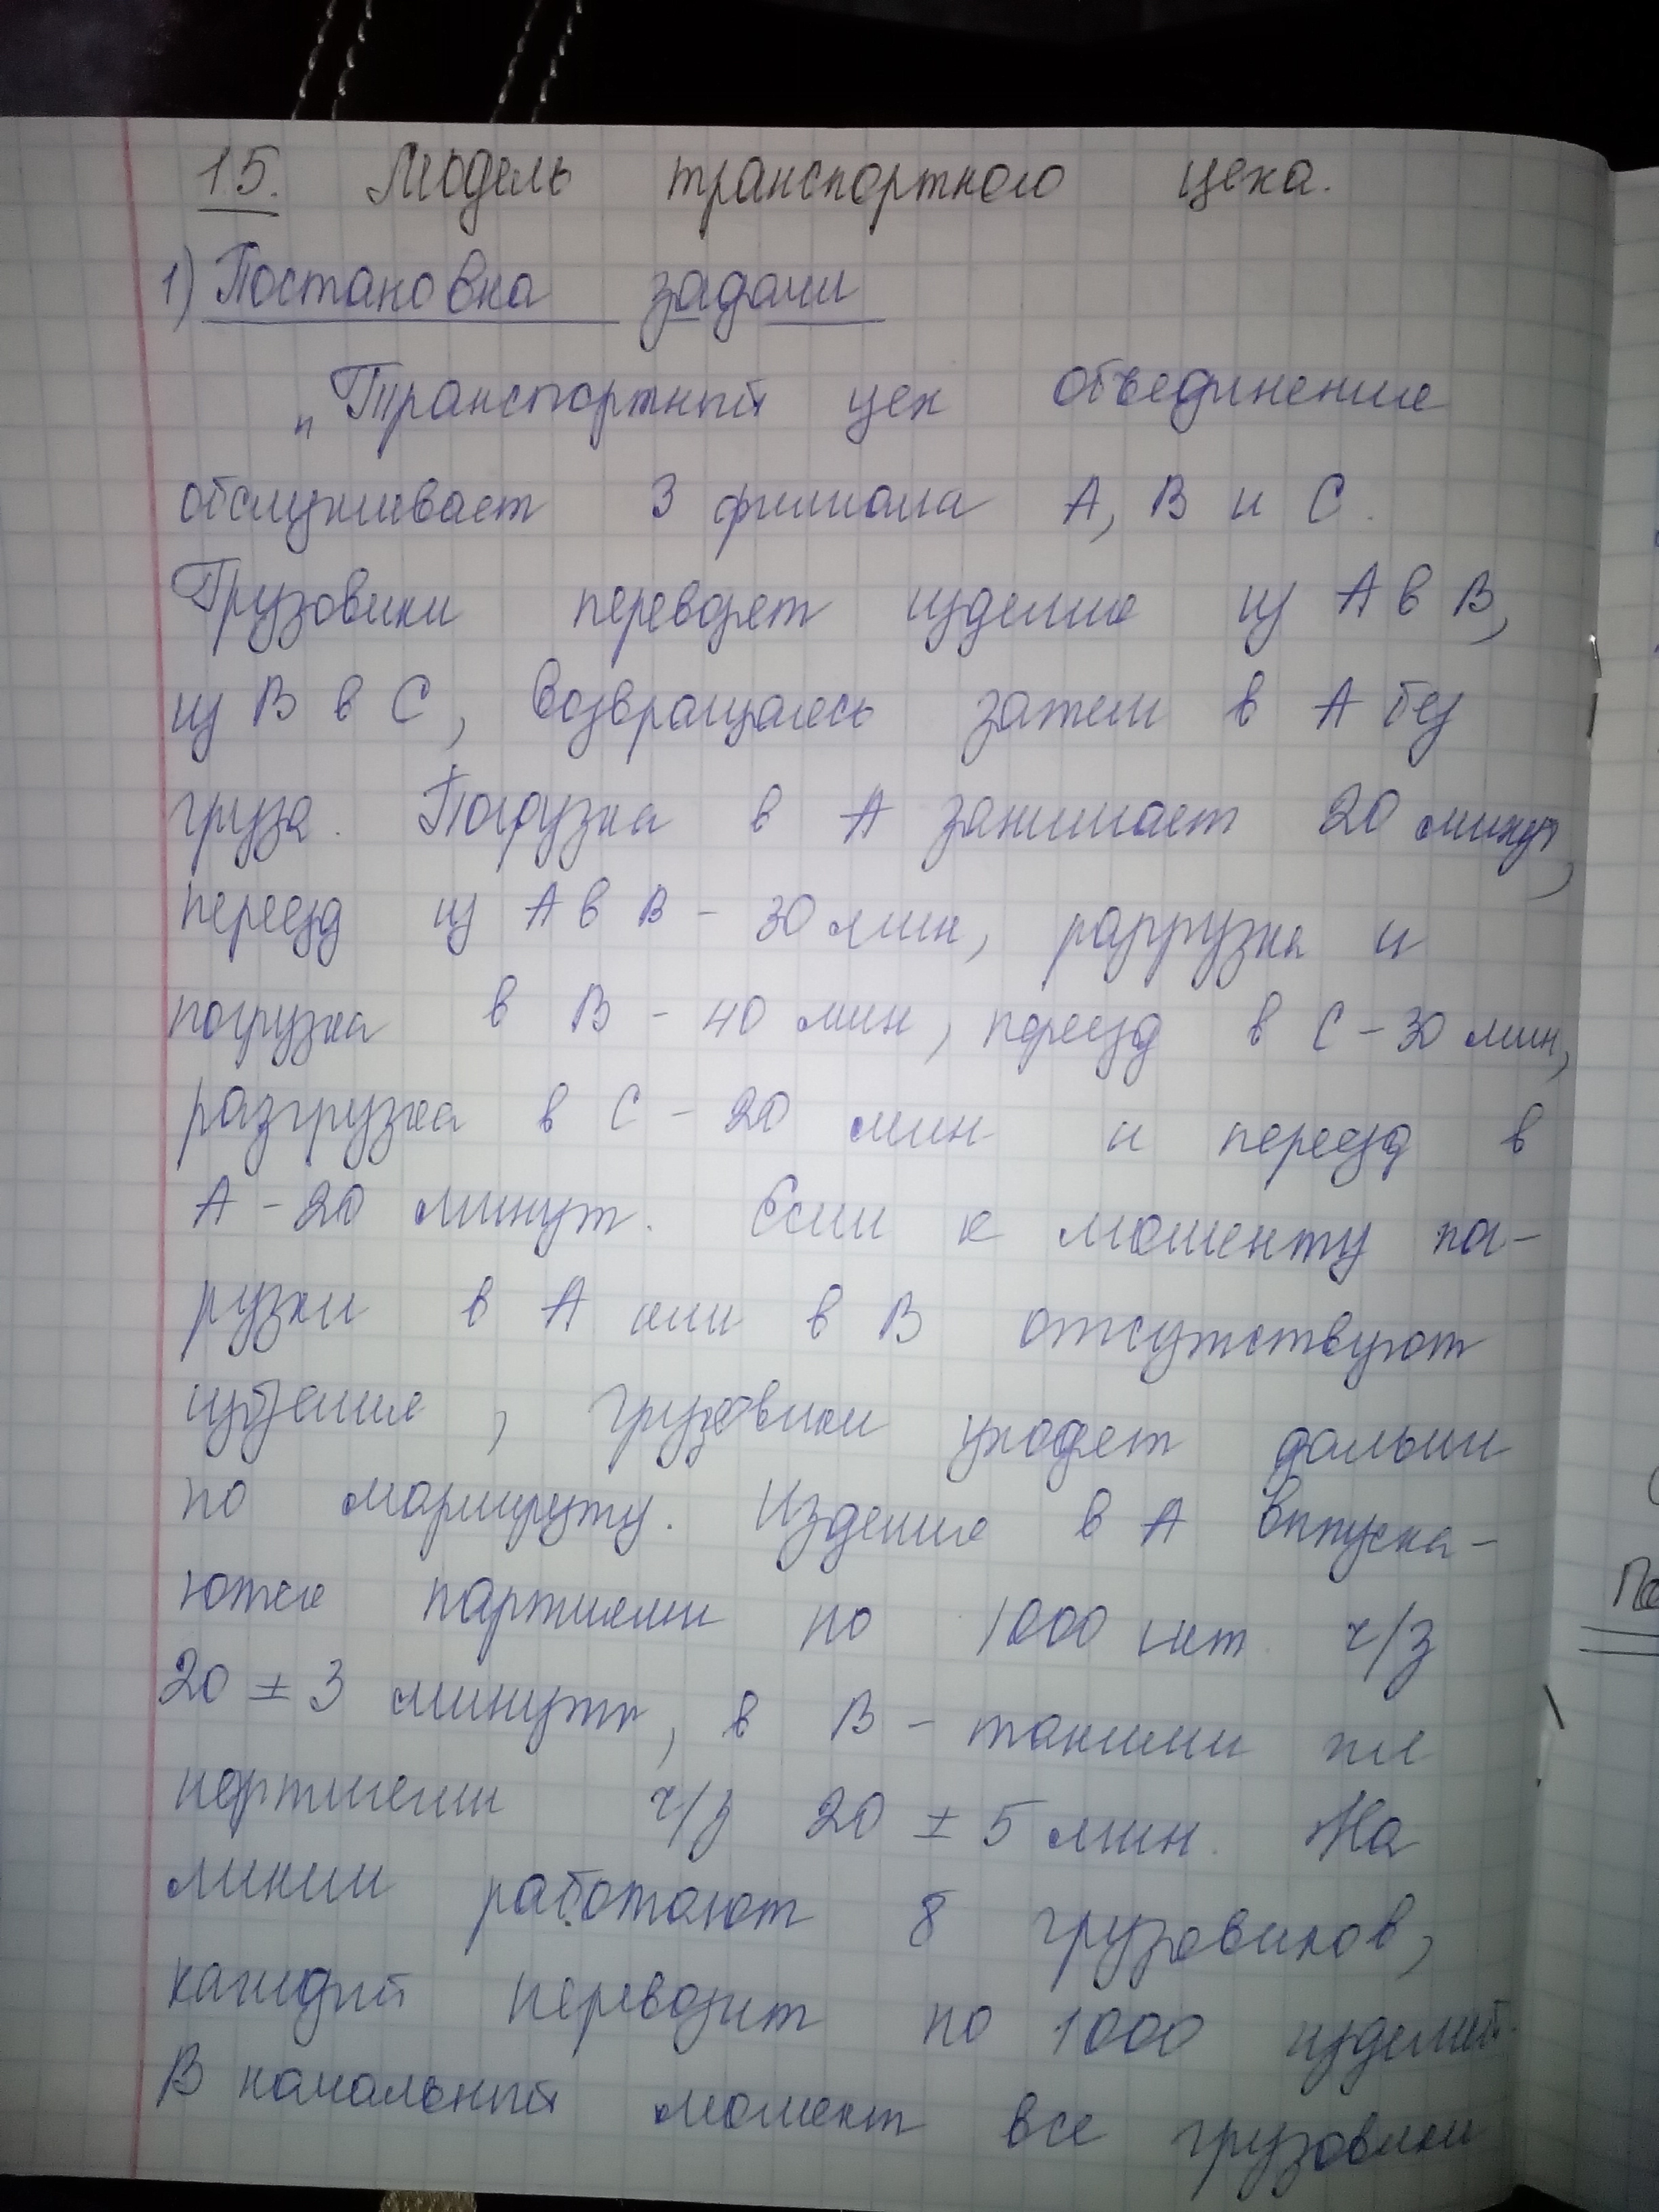 15. Модель транспортного цеха.
1) Постановка задачи
„Транспортный цех объединение
обслуживает 3 филиала А, В и С.
Грузовики перевозят изделие из А в В,
из В в С, возвращаясь затем в А без
груза. Погрузка в А занимает 20 минут,
переезд из А в В - 30 мин, разгрузка и
погрузка в В - 40 мин, переезд в С - 30 мин,
разгрузка в С - 20 мин и переезд в
А - 20 минут. Если к моменту по-
рузки в А или в В отсутствуют
изделия, грузовики уходят дальше
по маршруту. Изделие в А выпуска-
ются партиями по 1000 шт. ч/з
20 ± 3 минуты, в В - такими же
партиями ч/з 20 ± 5 мин. На
линии работают 8 грузовиков,
каждый перевозит по 1000 изделий.
В начальный момент все грузовики
По